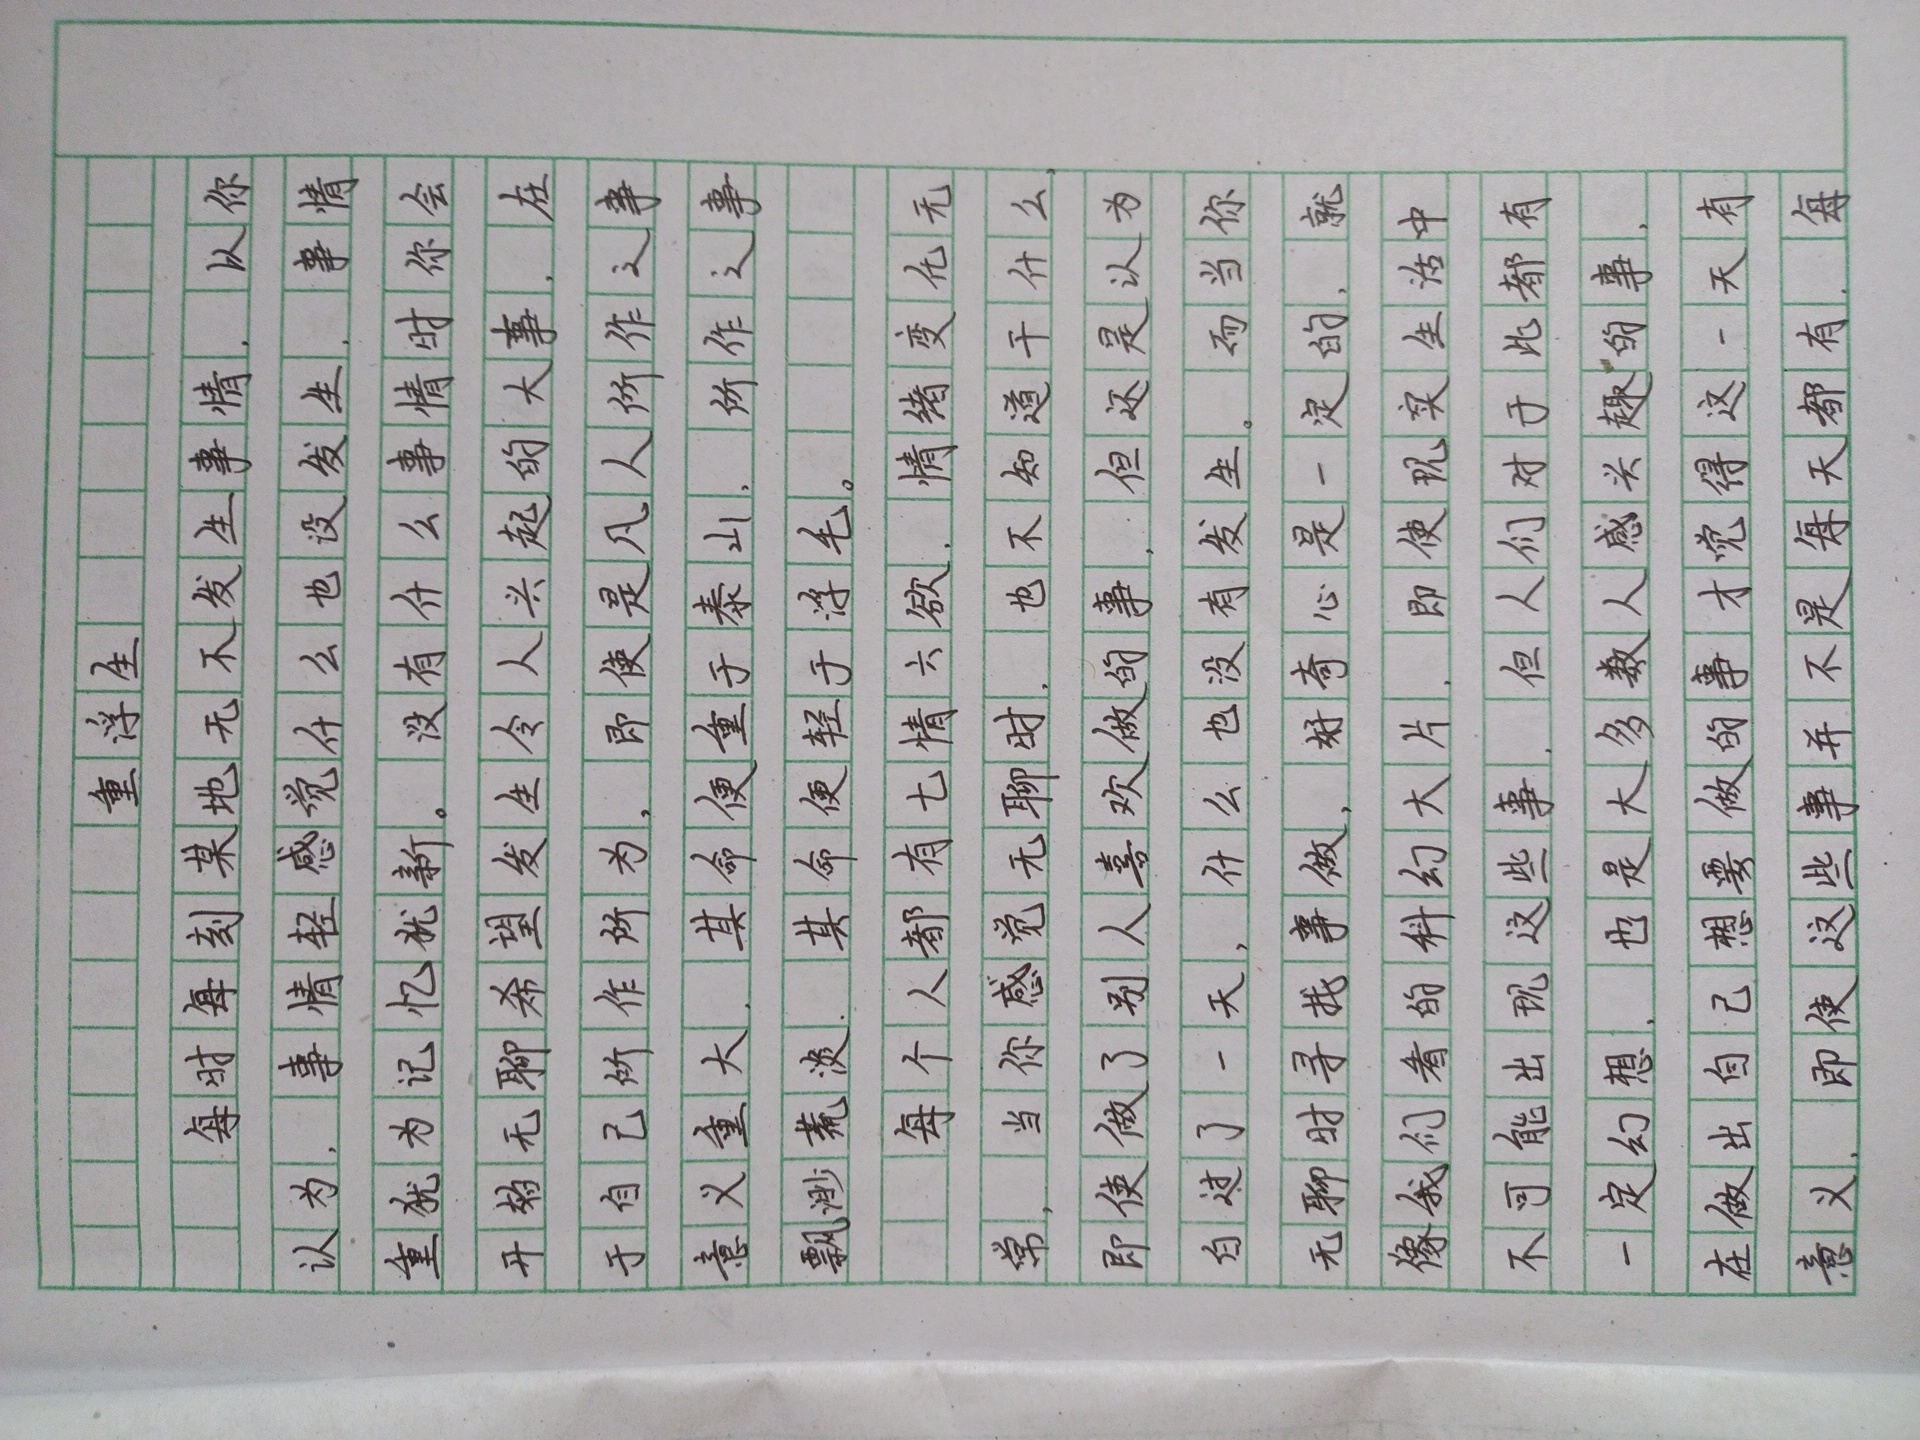 重浮生
每时每刻某地无不发生事情.以你
认为.事情轻感觉什么也没发生.事情
重犹为记忆犹新。没有什么事情时你会
开始无聊希望发生令人兴起的大事.在
于自己所作所为,即使是凡人所作之事
意义重大.其命便重于泰山.所作之事
飘渺荒淡.其命便轻于浮毛。
每个人都有七情六欲.情绪变化无
常,当你感觉无聊时.也不知道干什么,
即使做了别人喜欢做的事.但还是以为
白过了一天,什么也没有发生。而当你
无聊时寻找事做,好奇心是一定的.就
像我们看的科幻大片.即使现实生活中
不可能出现这些事.但人们对于此都有
一定幻想.也是大多数人感兴趣的事.
在做出自己想要做的事才觉得这一天有
意义.即使这些事并不是每天都有.每